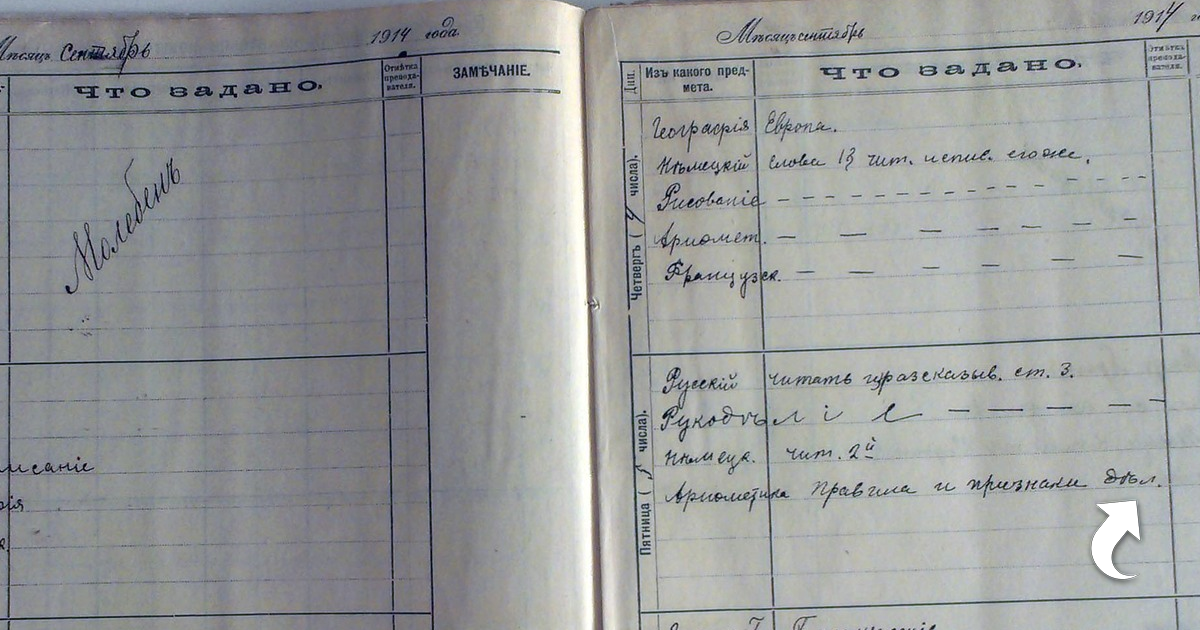 Мѣсяцъ сентябрь 1914 года.
ЧТО ЗАДАНО.
Отмѣтка преподавателя.
ЗАМѢЧАНІЕ.
Молебенъ
исаніе
Мѣсяцъ сентябрь 1914
Дни.
Изъ какого предмета.
ЧТО ЗАДАНО.
Отмѣтка преподавателя.
Четвергъ (4 числа).
Географія Европа.
Нѣмецкій слова 13 чит. испис. егоже.
Рисованіе – – – – – – – – – – – –
Ариѳмет. — — — — — —
Французск. — — — — — —
Пятница (5 числа).
Русскій читать и разсказыв. ст. 3.
Рукодѣліе — — — — —
Нѣмецк. чит. 2й
Ариѳметика Правила и признаки дѣл.